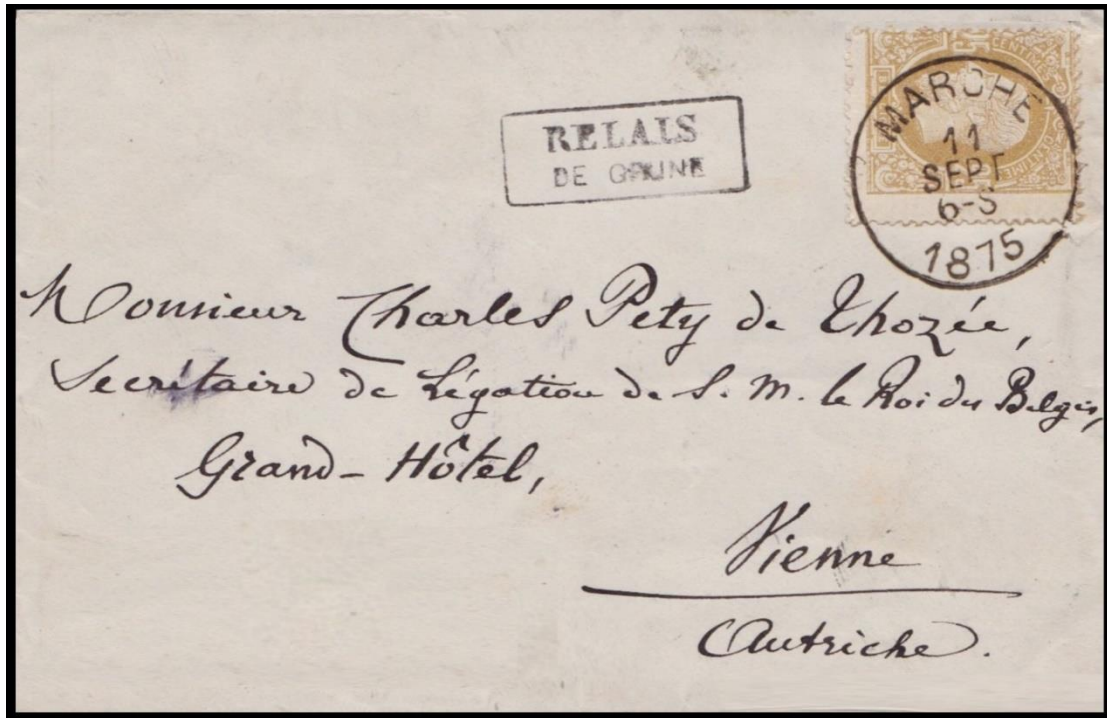 CENTIMES
MARCHE
11
SEPT
6-S
1875
RELAIS
DE GRUNE
Monsieur Charles Pety de Thozée,
Secrétaire de Légation de S. M. le Roi des Belges,
Grand-Hôtel,
Vienne
Autriche.